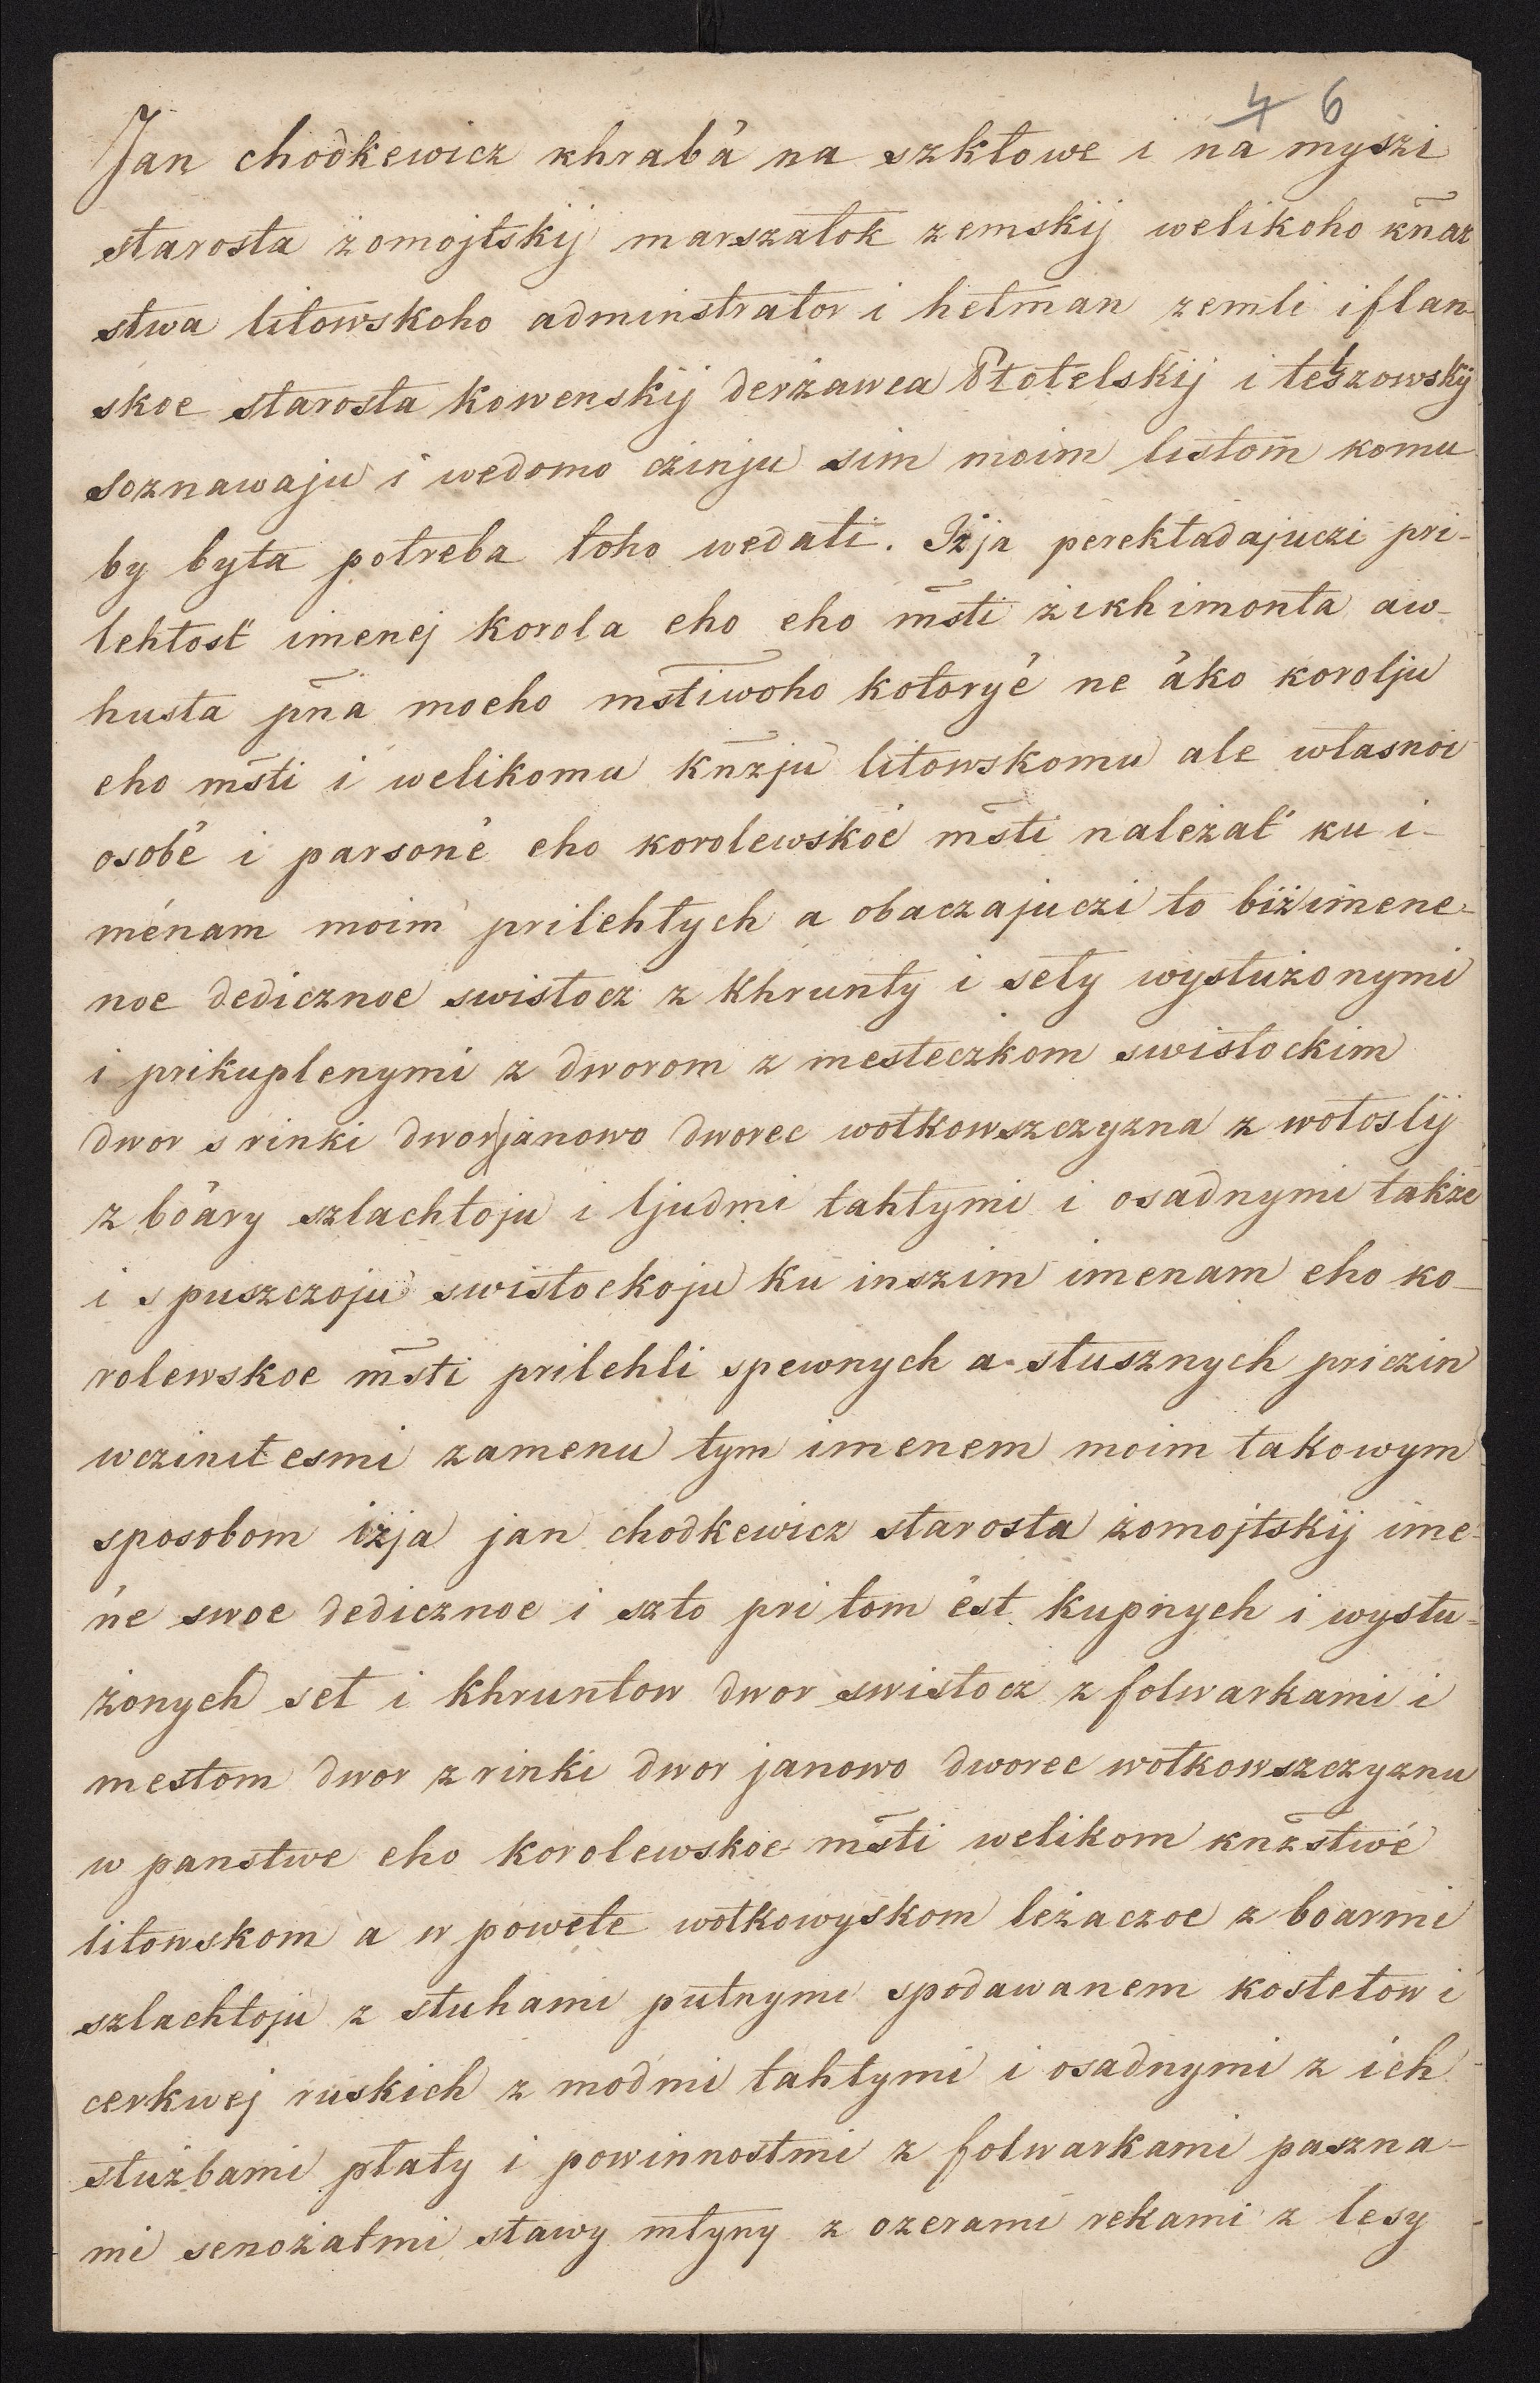 4 6
Jan chodkewicz khrab'a na szkłowe i na myszi
starosta żomojtskij marszałok zemskij welikoho kñaz
stwa litowskoho adminstrator i hetman zemli iflan-
skoe starosta kowenskij derżawca Płotelskij i telszowskij
soznawaju i wedomo czinju sim moim listom komu
by była potreba toho wedati. Iżja perekładajuczi pri-
lehłost' imenej korola eho eho m̃sti żikhimonta aw-
husta pña moeho m̃stiwoho kotorye' ne áko korolju
eho m̃sti i welikomu kñzju litowskomu ale własnoi
osobe' i parsone' eho korolewskoé m̃sti należat' ku i-
ménam moim prilehłych a obaczajuczi to biż imene-
noe dedicznoe swisłocz z khrunty i seły wysłużonymi
i prikuplenymi z dworom z mesteczkom swisłockim
dwor s rinki dwor janowo dworec wołkowszczyzna z wołostij
z boáry szlachtoju i ljudmi tahłymi i osadnymi także
i s puszczoju swisłockoju ku inszim imenam eho ko-
rolewskoe m̃sti prilehli spewnych a słusznych priczin
wcziniłesmi zamenu tym imenem moim takowym
sposobom iżja jan chodkewicz starosta żomojtskij ime-
ńe swoe dedicznoe i szto pri tom ést kupnych i wysłu-
żonych seł i khruntow dwor swisłocz z folwarkami i
mestom dwor z rinki dwor janowo dworec wołkowszczyznu
w panstwe eho korolewskoe m̃sti welikom kñzstwé
litowskom a w powete wołkowyskom leżaczoe z boarmi
szlachtoju z słuhami putnymi spodawanem kostełow i
cerkwej ruskich z modmi tahłymi i osadnymi z ich
służbami płaty i powinnostmi z folwarkami paszna-
mi senożatmi stawy młyny z ozerami rekami z lesy